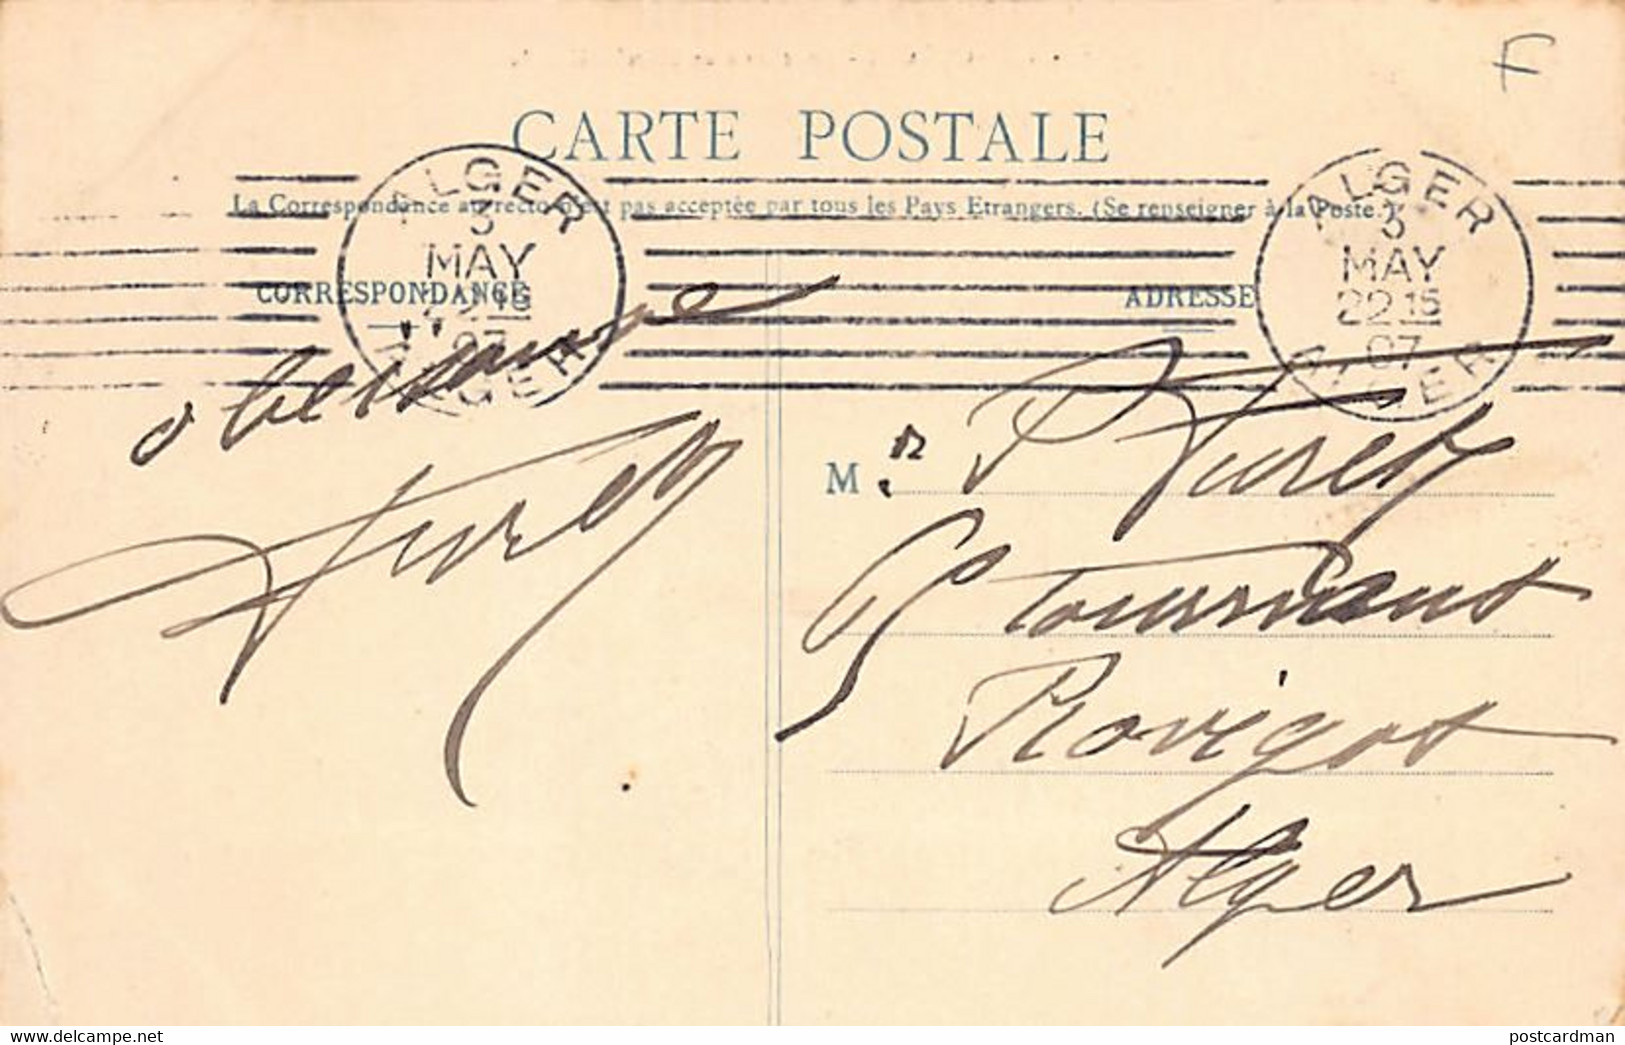 F
CARTE POSTALE
La Correspondance au recto n'est pas acceptée par tous les Pays Etrangers. (Se renseigner à la Poste.)
ALGER
3
MAY
22 15
07
ALGER
ALGER
3
MAY
22 15
07
ALGER
CORRESPONDANCE
ADRESSE
M
5 tournant
Rovigot
Alger
postcardman